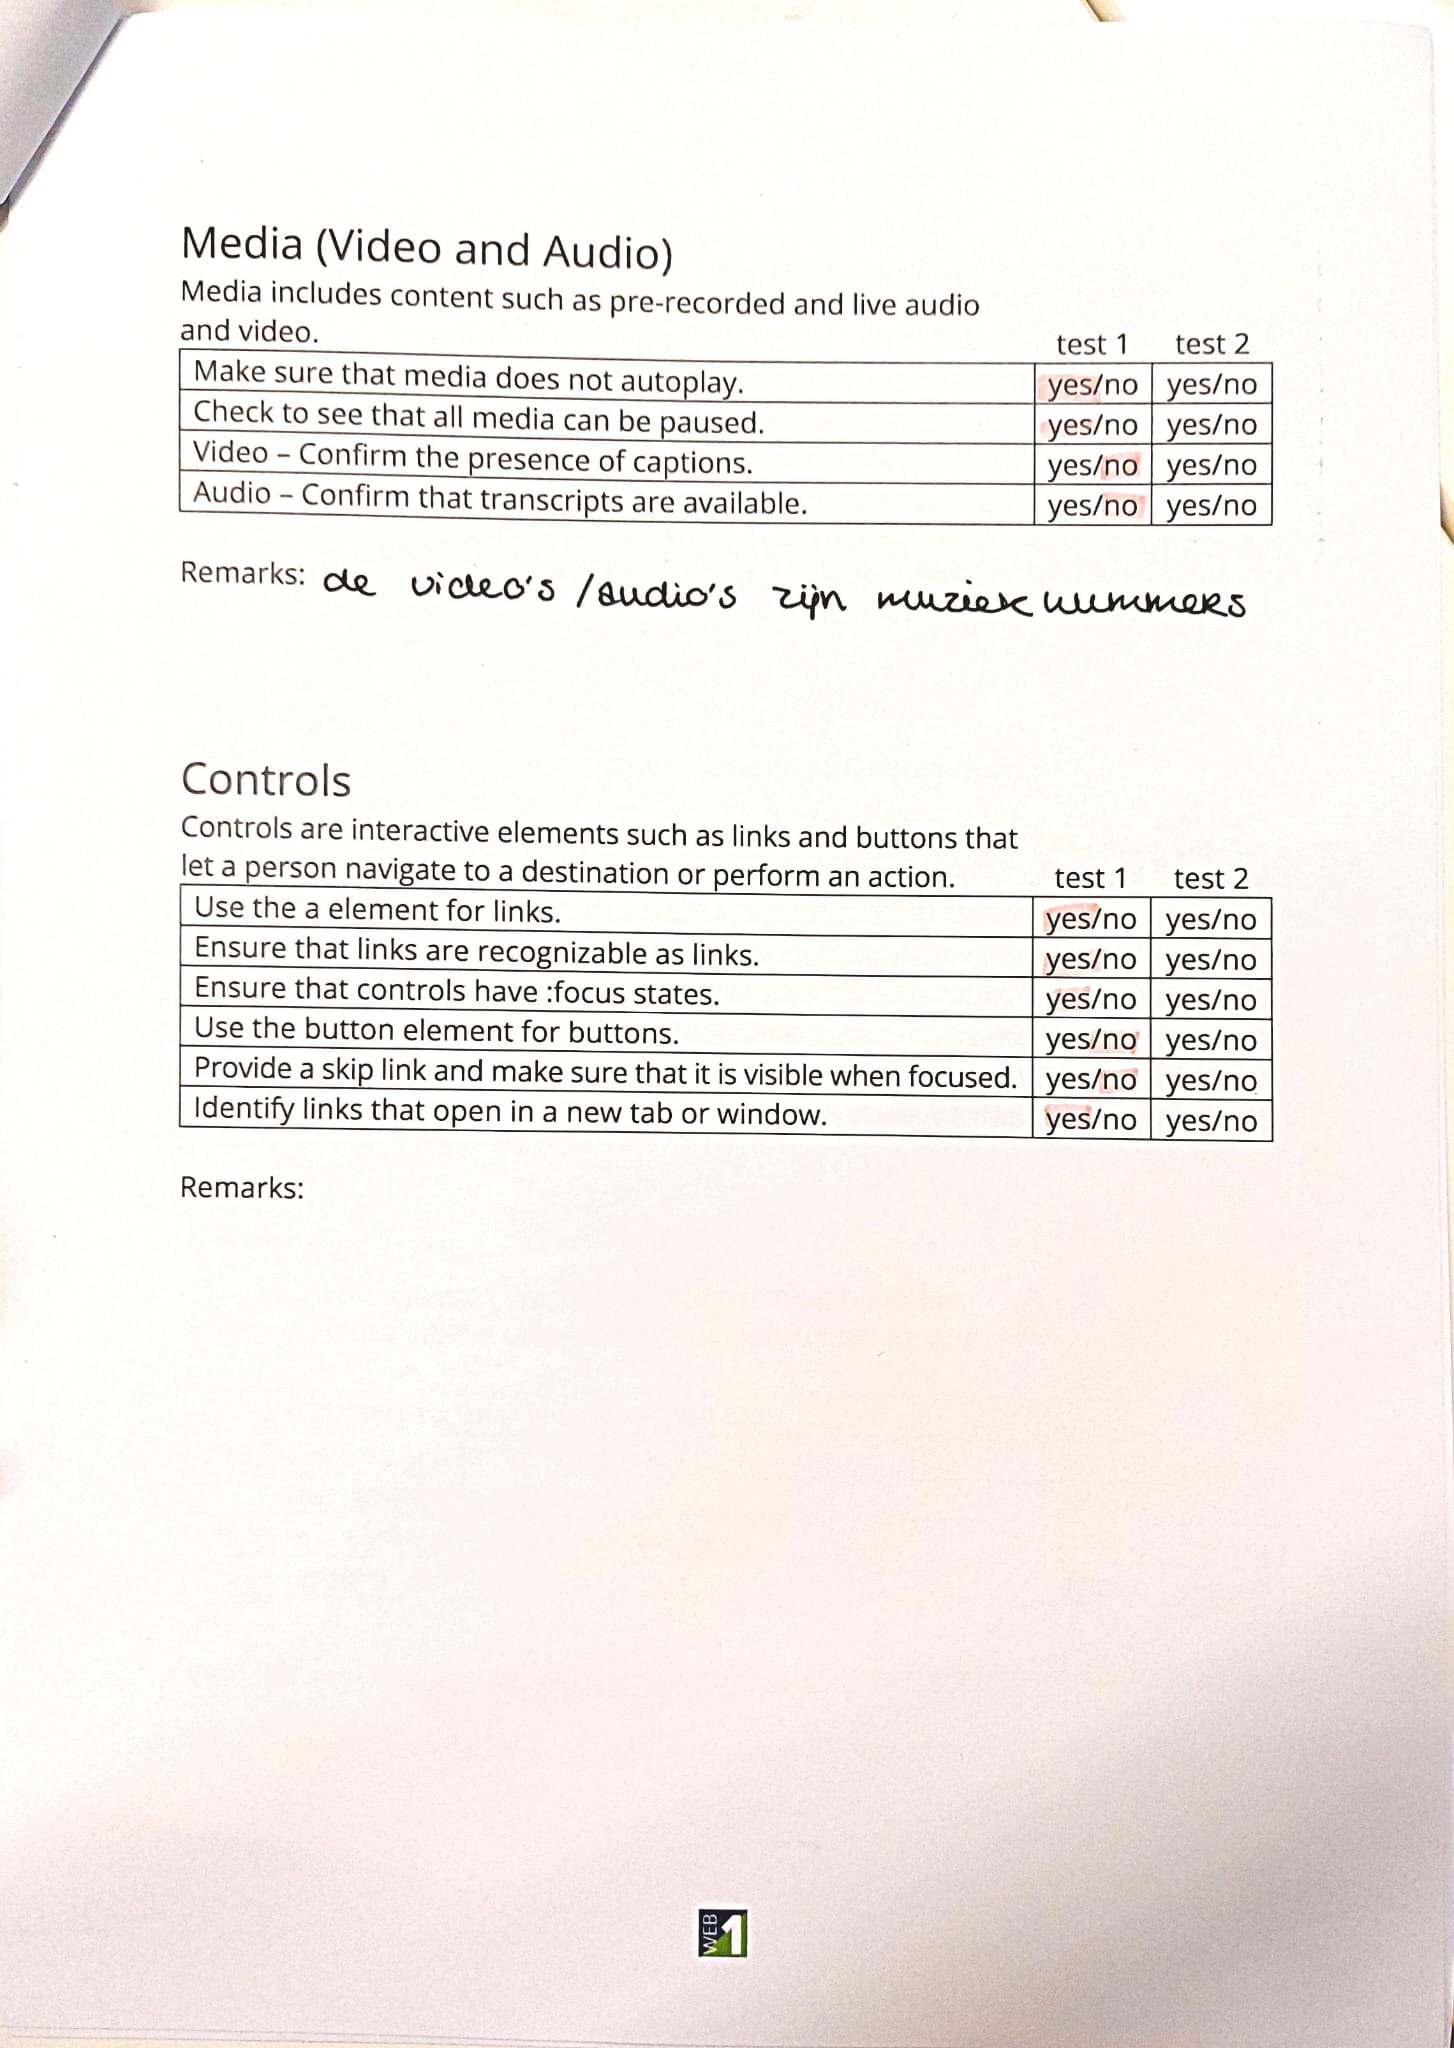 Media (Video and Audio)
Media includes content such as pre-recorded and live audio
and video. test 1 test 2
Make sure that media does not autoplay. yes/no yes/no
Check to see that all media can be paused. yes/no yes/no
Video – Confirm the presence of captions. yes/no yes/no
Audio – Confirm that transcripts are available. yes/no yes/no
Remarks: de video's / audio's zijn muzieknummers
Controls
Controls are interactive elements such as links and buttons that
let a person navigate to a destination or perform an action. test 1 test 2
Use the a element for links. yes/no yes/no
Ensure that links are recognizable as links. yes/no yes/no
Ensure that controls have :focus states. yes/no yes/no
Use the button element for buttons. yes/no yes/no
Provide a skip link and make sure that it is visible when focused. yes/no yes/no
Identify links that open in a new tab or window. yes/no yes/no
Remarks:
WEB 1